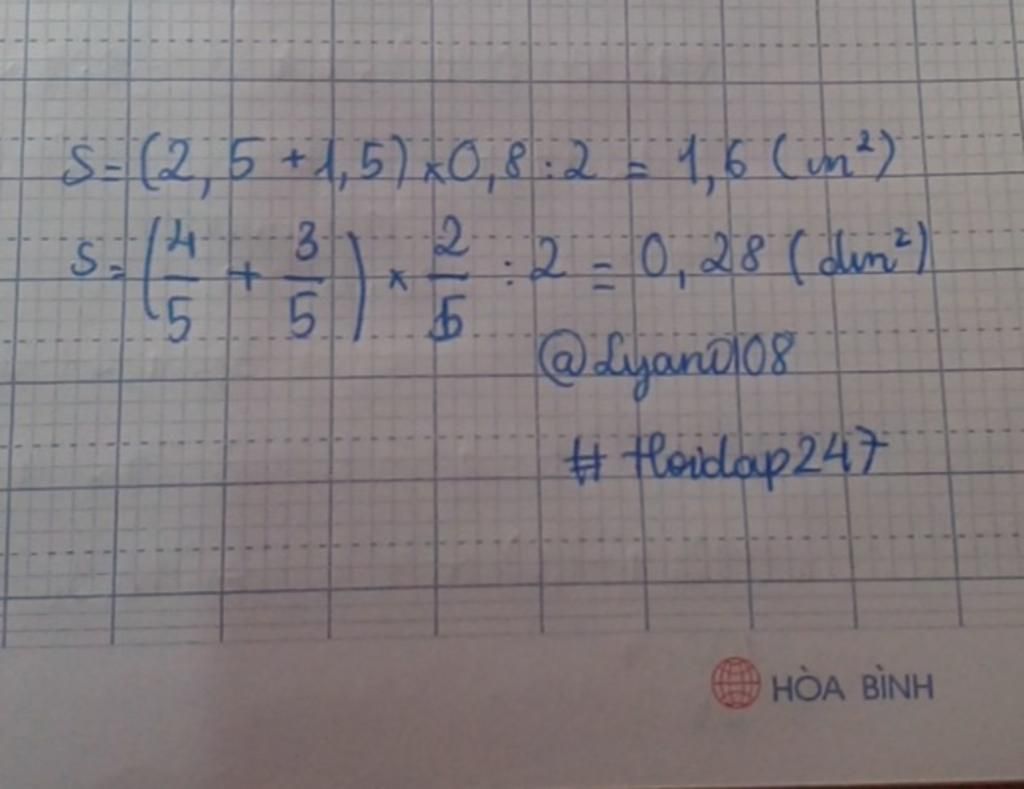 S=(2,5+1,5)×0,8:2 = 1,6 (m²)
S=(4/5 + 3/5) × 2/5 : 2 = 0,28 (dm²)
@Lyan0108
# Hoidap247
HÒA BÌNH